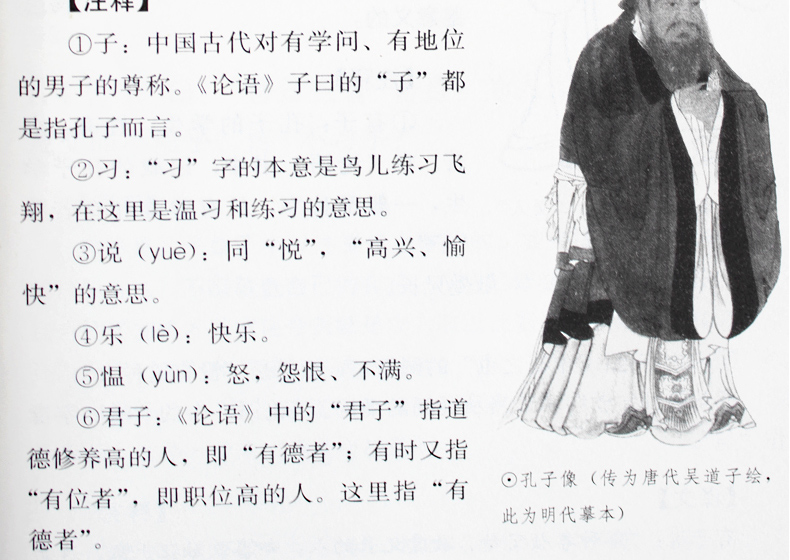 【注释】
①子：中国古代对有学问、有地位
的男子的尊称。《论语》子曰的“子”都
是指孔子而言。
②习：“习”字的本意是鸟儿练习飞
翔，在这里是温习和练习的意思。
③说（yuè）：同“悦”，“高兴、愉
快”的意思。
④乐（lè）：快乐。
⑤愠（yùn）：怒，怨恨、不满。
⑥君子：《论语》中的“君子”指道
德修养高的人，即“有德者”；有时又指
“有位者”，即职位高的人。这里指“有
德者”。
⊙孔子像（传为唐代吴道子绘，
此为明代摹本）